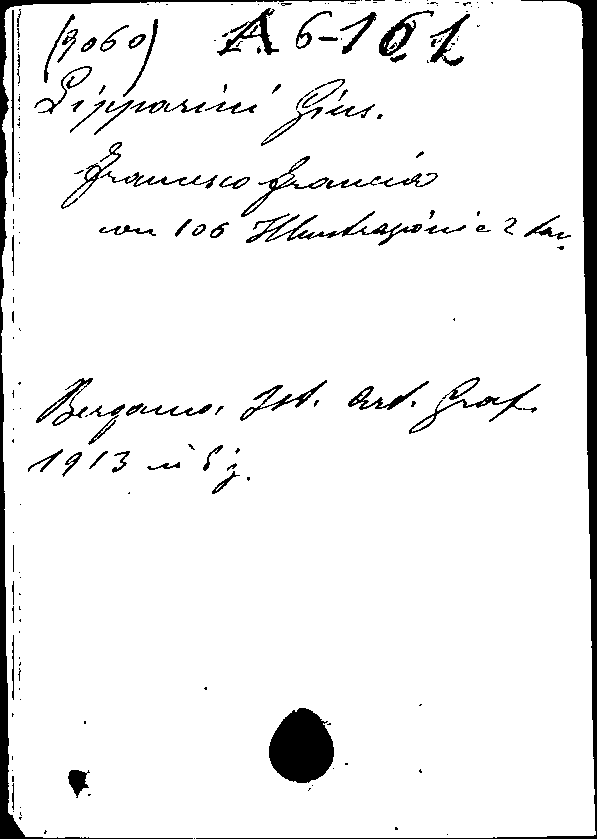 (9060) A 6-161
Lipparini Gius.
Francesco Francia
con 106 Illustrazioni e 2 tav.
Bergamo, Ist. Art. Graf.
1913